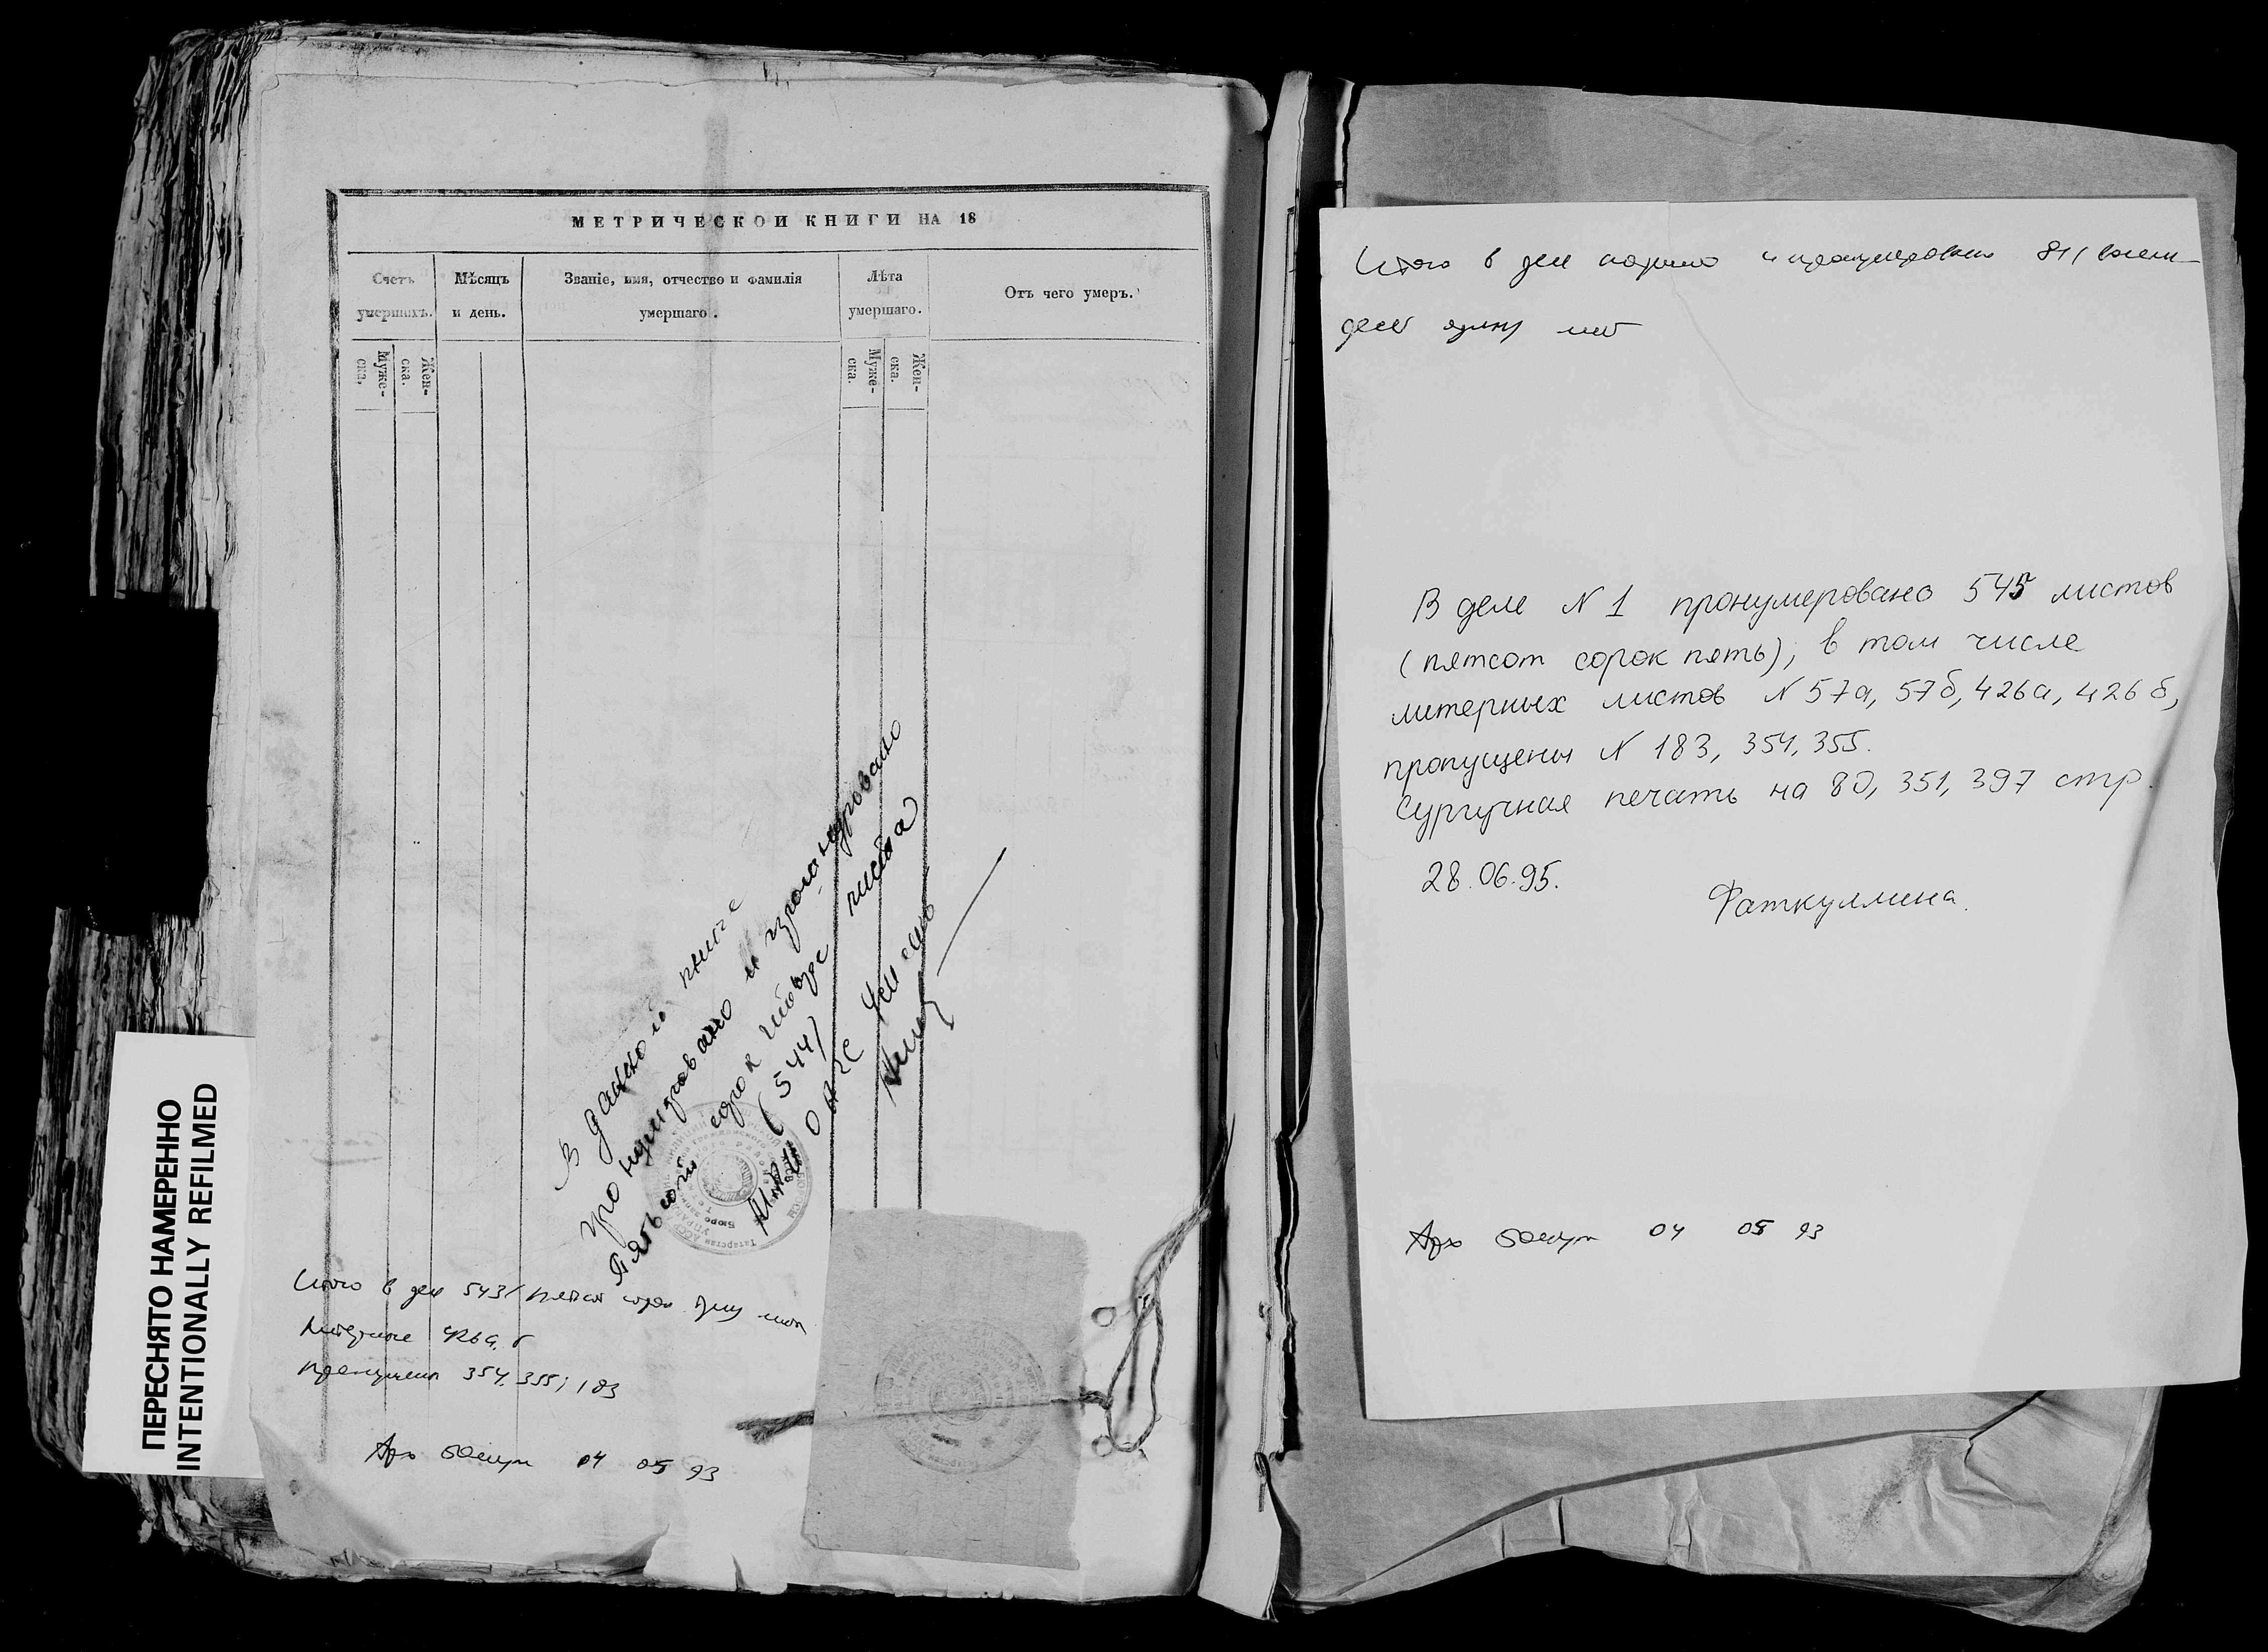 МЕТРИЧЕСКОЙ КНИГИ НА 18
Счетъ умершихъ.
Мѣсяцъ и день.
Званіе, имя, отчество и фамилія умершаго.
Лѣта умершаго.
Отъ чего умеръ.
Муже-ска.
Жен-ска.
Муже-ска.
Жен-ска.
В данной книге
пронумеровано и прошнуровано
Пятьсот сорок четыре листа
(544)
Итого в деле 543/ пятсот сорок три лист
Литерные 426а, б
пропущены 354, 355, 183
Арх 04 05 93
ПЕРЕСНЯТО НАМЕРЕННО
INTENTIONALLY REFILMED
Итого в деле подшито и пронумеровано 81/ восем-
десят один лист
В деле N 1 пронумеровано 545 листов
(пятсот сорок пять), в том числе
литерных листов N 57а, 57б, 426а, 426б,
пропущены N 183, 354, 355.
Сургучная печать на 80, 351, 397 стр.
28.06.95.
Фаткуллина.
Арх 04 05 93